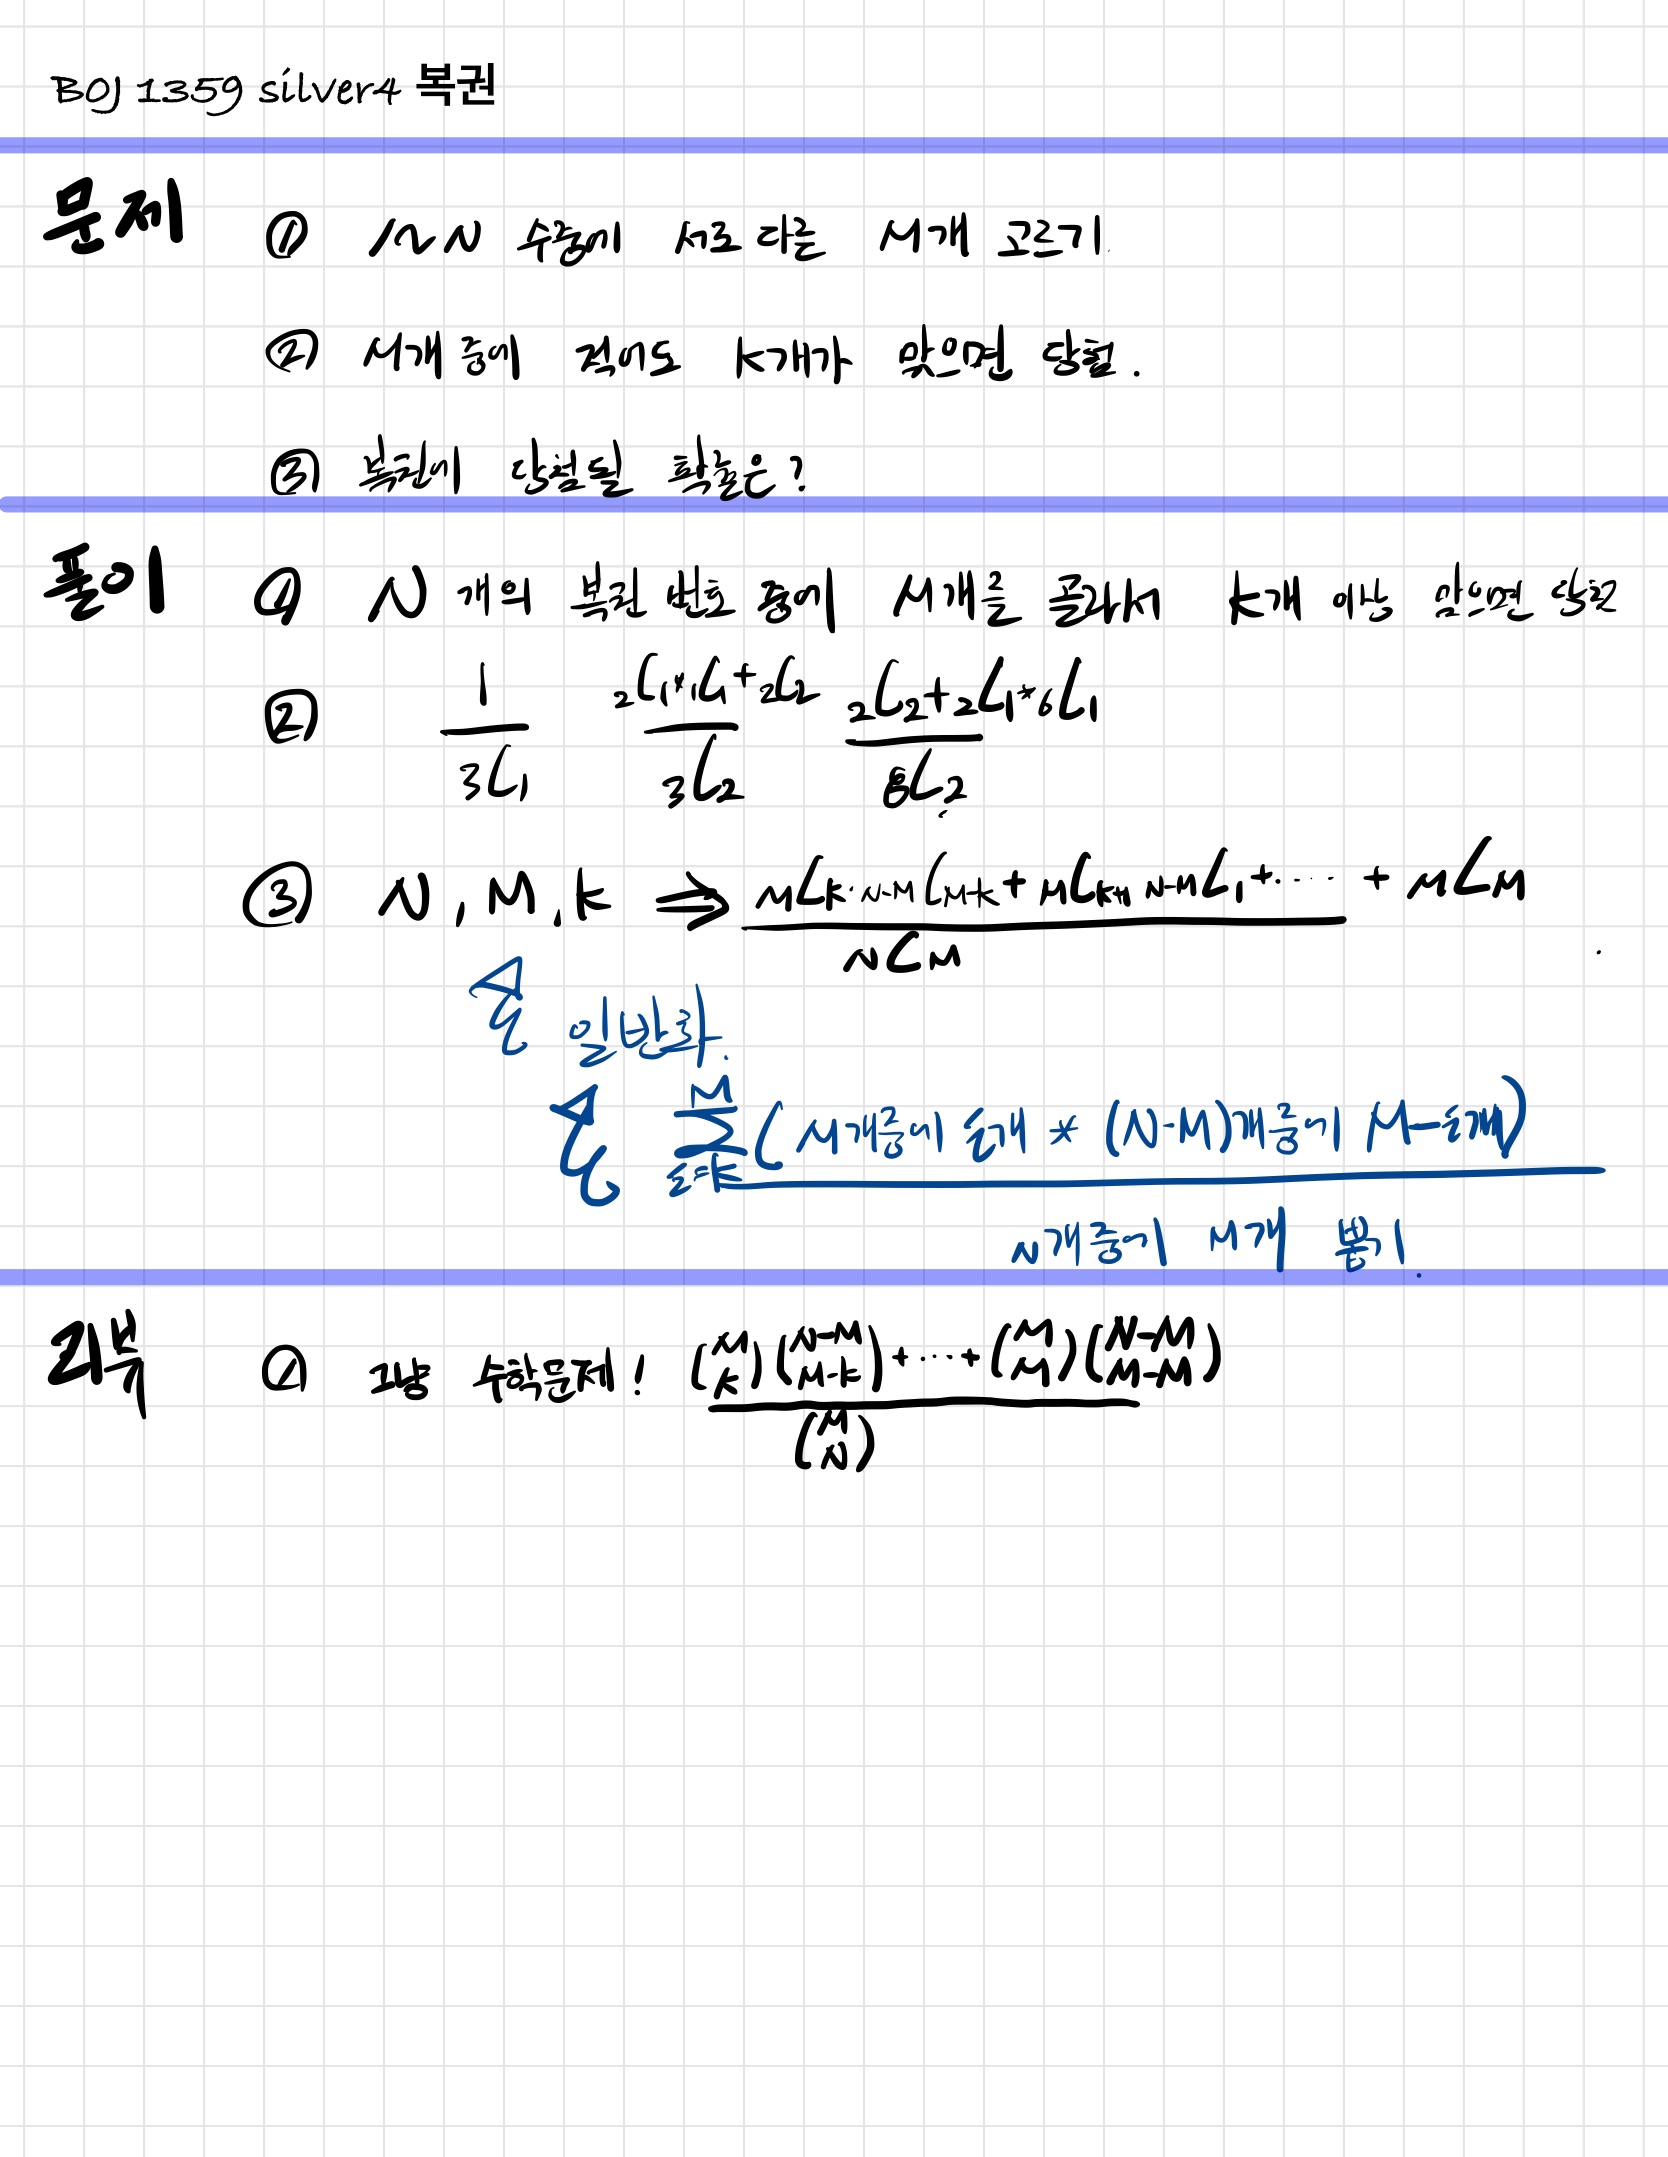 BOJ 1359 silver4 복권
문제 ① 1~N 수중에 서로 다른 M개 고르기.
② M개 중에 적어도 K개가 맞으면 당첨.
③ 복권에 당첨될 확률은?
풀이 ① N개의 복권 번호 중에 M개를 골라서 K개 이상 맞으면 당첨
② 1 / 3C1   2C1*1C1+2C2 / 3C2   2C2+2C1*6C1 / 8C2
③ N, M, K ⇒ MCK·N-MCM-K + MCK+1 N-MC1 + ···· + MCM
NCM
일반화.
M
Σ (M개중에 i개 * (N-M)개중에 M-i개)
i=K
N개중에 M개 뽑기.
리뷰 ① 그냥 수학문제! (M K)(N-M M-K) + ··· + (M M)(N-M M-M)
(M N)